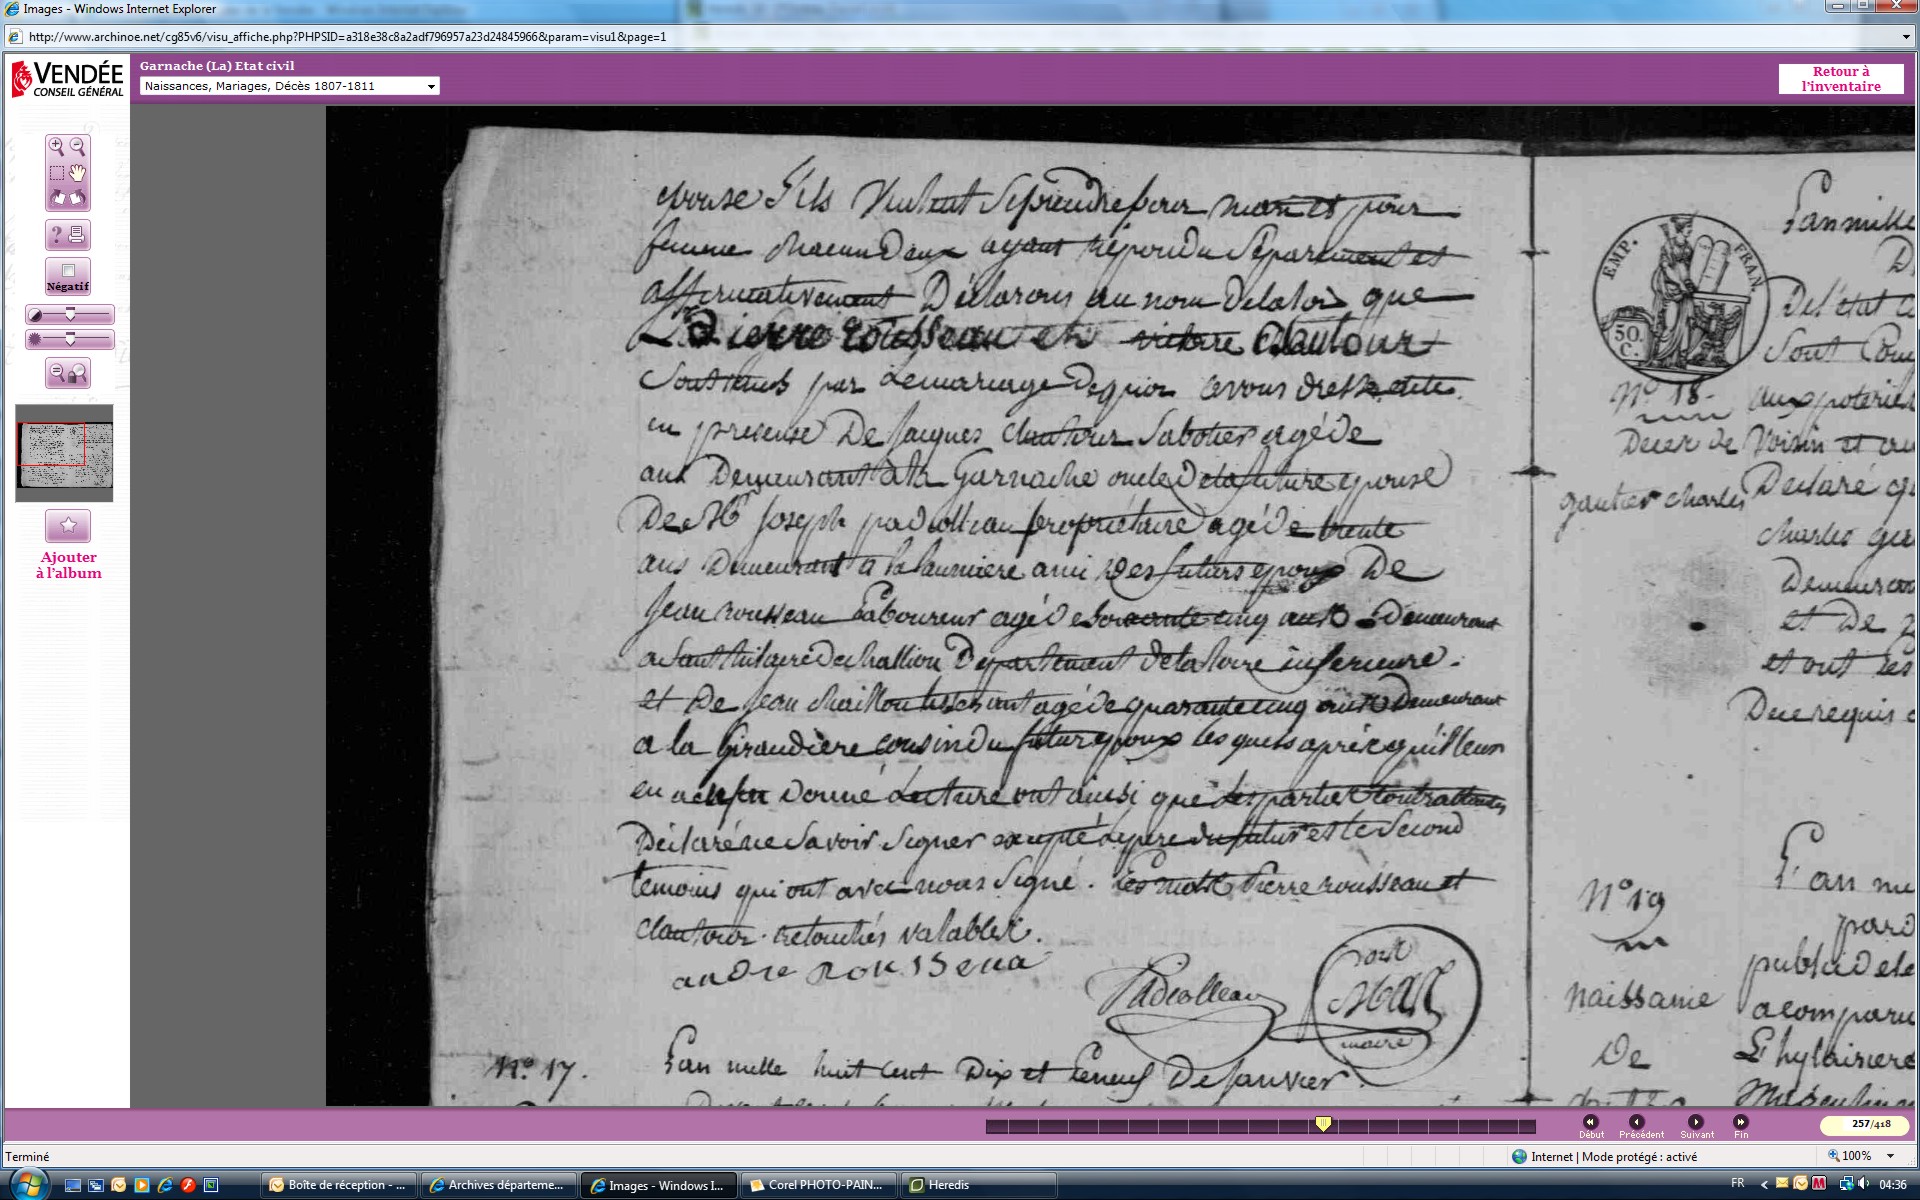 Images - Windows Internet Explorer
http://www.archinoe.net/cg85v6/visu_affiche.php?PHPSID=a318e38c8a2adf796957a23d24845966&param=visu1&page=1
VENDÉE
CONSEIL GÉNÉRAL
Garnache (La) Etat civil
Naissances, Mariages, Décès 1807-1811
Retour à
l'inventaire
Négatif
Ajouter
à l'album
epouse S'ils Veulent Se prendre pour mari et pour
femme chacun Deux ayant répondu Séparement et
affirmativement Déclarons au nom de la loi que
Pierre rousseau et victoire Clautour
Sont unis par Le mariage De quoi avons dressé acte
en presence De Jacques Clautour Sabotier agé de
ans Demeurant a la Garnache oncle De la future epouse
De Mr Joseph padiolleau propriétaire agé de trente
ans Demeurant a la ami Des futurs epoux De
Jean rousseau Laboureur agé de soixante cinq ans Demeurant
a Saint hilaire de challion Departement de la loire inferieure.
et De Jean chaillou tisserant agé de quarante cinq ans Demeurant
a la Giraudière cousin du futur epoux les quels après qu'il leur
en a été Donné Lecture ont ainsi que les parties contractantes
Déclaré ne Savoir Signer excepté le pere du futur et le Second
temoins qui ont avec nous Signé. Les mots Pierre rousseau et
clautour retouchés valables.
andre rousseau
Padiolleau
maire
No. 17. L'an mille huit cent Dix et Le neuf De Janvier
EMP. FRAN.
50.
C.
L'an mille
De l'état c
Sont
No. 18. aux poteries
Décer de Voisin et
gautier charles Déclaré q
charles
Demeur
et De
et ont
Dece requis
No 19
L'an
naissance
De
publi de
a comparu
L'hylairiere
Début
Précédent
Suivant
Fin
257/418
Terminé
Internet | Mode protégé : activé
100%
Boîte de réception - ...
Archives départeme...
Images - Windows I...
Corel PHOTO-PAIN...
Heredis
FR
04:36